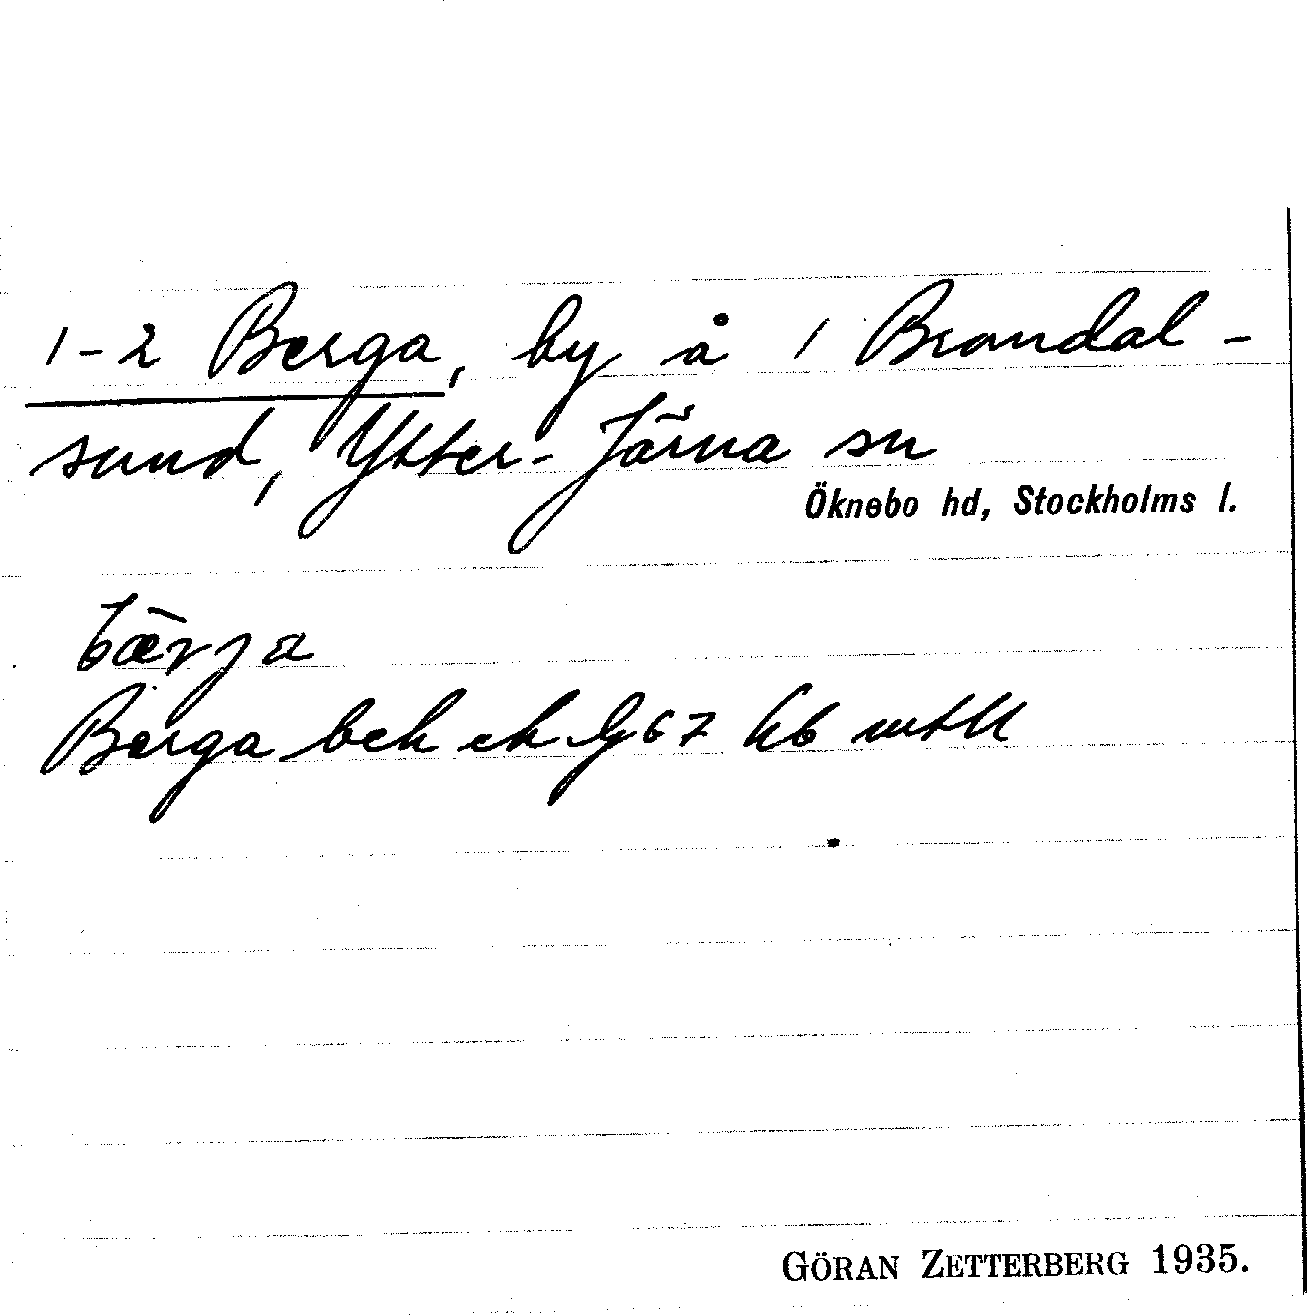 1-2 Berga, by å 1 Brandal-
sund, Ytter-Järna sn
Öknebo hd, Stockholms l.
bær̀ja
Berga bek ek Jb 67 kb mtll
GÖRAN ZETTERBERG 1935.